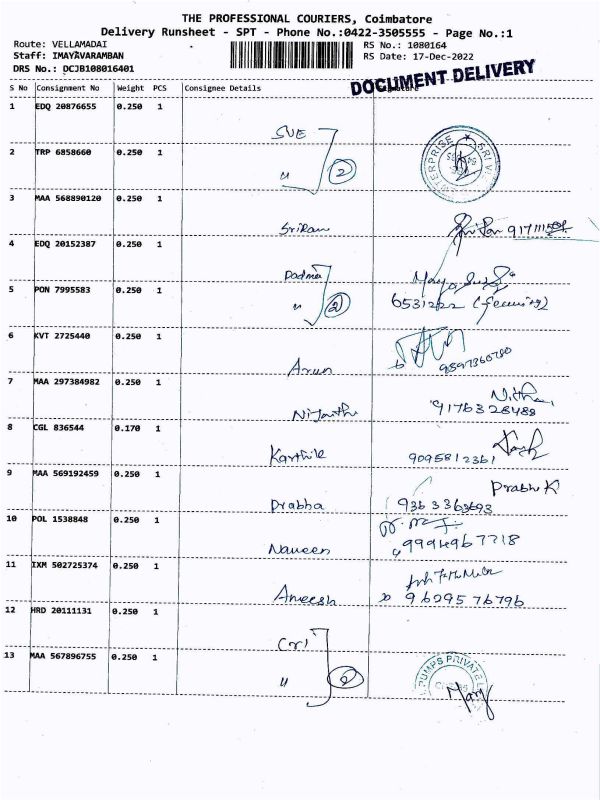 THE PROFESSIONAL COURIERS, Coimbatore
Delivery Runsheet - SPT - Phone No.:0422-3505555 - Page No.:1
Route: VELLAMADAI
Staff: IMAYAVARAMBAN
DRS No.: DCJB108016401
RS No.: 1080164
RS Date: 17-Dec-2022
DOCUMENT DELIVERY
S No Consignment No Weight PCS Consignee Details
1 EDQ 20876655 0.250 1
SVE
2 TRP 6858660 0.250 1
" 2
ENTERPRISE ★ SRI
3 MAA 568890120 0.250 1
Sriram
4 EDQ 20152387 0.250 1
Padma
5 PON 7995583 0.250 1
" 2
6531222
6 KVT 2725440 0.250 1
Arun
7 MAA 297384982 0.250 1
9176328488
8 CGL 836544 0.170 1
Karthik 9095812361
9 MAA 569192459 0.250 1
Prabhu K
Prabha 9363363693
10 POL 1538848 0.250 1
Naveen 9994967718
11 IXM 502725374 0.250 1
Aneesh 9629576796
12 HRD 20111131 0.250 1
CRI
13 MAA 567896755 0.250 1
" 2
PUMPS PRIVATE
Mary